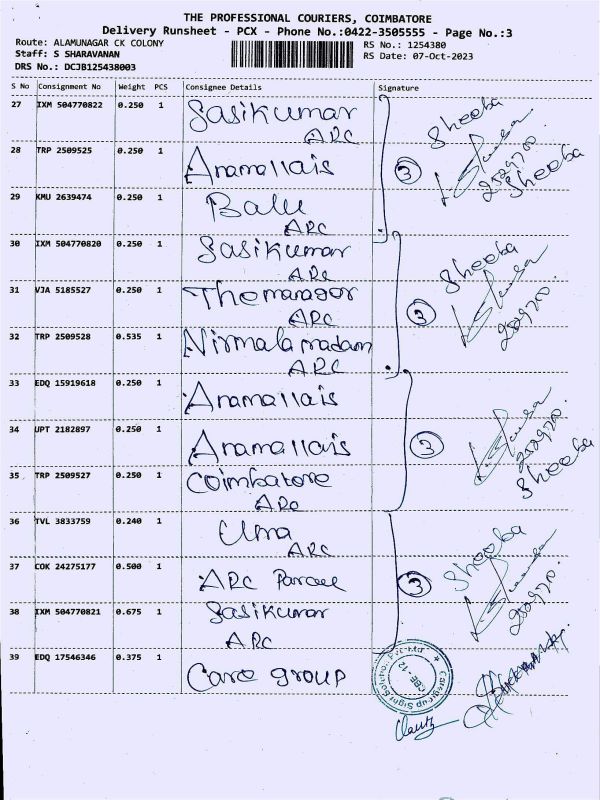 THE PROFESSIONAL COURIERS, COIMBATORE
Delivery Runsheet - PCX - Phone No.:0422-3505555 - Page No.:3
Route: ALAMUNAGAR CK COLONY
RS No.: 1254380
Staff: S SHARAVANAN
RS Date: 07-Oct-2023
DRS No.: DCJB125438003
S No Consignment No Weight PCS Consignee Details Signature
27 IXM 504770822 0.250 1 Sasikumar
ARC
Sheeba
28 TRP 2509525 0.250 1 Anamallais
3
Sheeba
29 KMU 2639474 0.250 1 Balu
ARC
30 IXM 504770820 0.250 1 Sasikumar
ARC
Sheeba
31 VJA 5185527 0.250 1
ARC
3
32 TRP 2509528 0.535 1 Nirmala madam
ARC
33 EDQ 15919618 0.250 1 Anamallais
34 UPT 2182897 0.250 1 Anamallais
3
35 TRP 2509527 0.250 1 Coimbatore
ARC
Sheeba
36 TVL 3833759 0.240 1 Uma
ARC
Sheeba
37 COK 24275177 0.500 1 ARC Parcel
3
38 IXM 504770821 0.675 1 Sasikumar
ARC
39 EDQ 17546346 0.375 1 Care group
CBE - 12